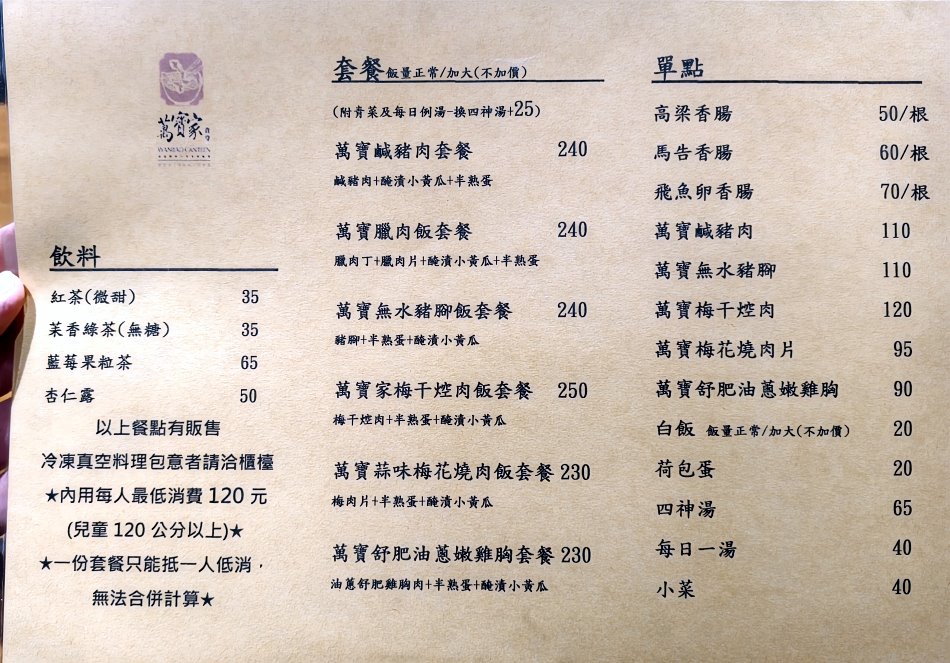 萬寶家
食堂
WANBAO CANTEEN
飲料
紅茶(微甜) 35
茉香綠茶(無糖) 35
藍莓果粒茶 65
杏仁露 50
以上餐點有販售
冷凍真空料理包意者請洽櫃檯
★內用每人最低消費 120 元
(兒童 120 公分以上)★
★一份套餐只能抵一人低消，
無法合併計算★
套餐飯量正常/加大(不加價)
(附青菜及每日例湯-換四神湯+25)
萬寶鹹豬肉套餐 240
鹹豬肉+醃漬小黃瓜+半熟蛋
萬寶臘肉飯套餐 240
臘肉丁+臘肉片+醃漬小黃瓜+半熟蛋
萬寶無水豬腳飯套餐 240
豬腳+半熟蛋+醃漬小黃瓜
萬寶家梅干焢肉飯套餐 250
梅干焢肉+半熟蛋+醃漬小黃瓜
萬寶蒜味梅花燒肉飯套餐 230
梅肉片+半熟蛋+醃漬小黃瓜
萬寶舒肥油蔥嫩雞胸套餐 230
油蔥舒肥雞胸肉+半熟蛋+醃漬小黃瓜
單點
高梁香腸 50/根
馬告香腸 60/根
飛魚卵香腸 70/根
萬寶鹹豬肉 110
萬寶無水豬腳 110
萬寶梅干焢肉 120
萬寶梅花燒肉片 95
萬寶舒肥油蔥嫩雞胸 90
白飯 飯量正常/加大(不加價) 20
荷包蛋 20
四神湯 65
每日一湯 40
小菜 40